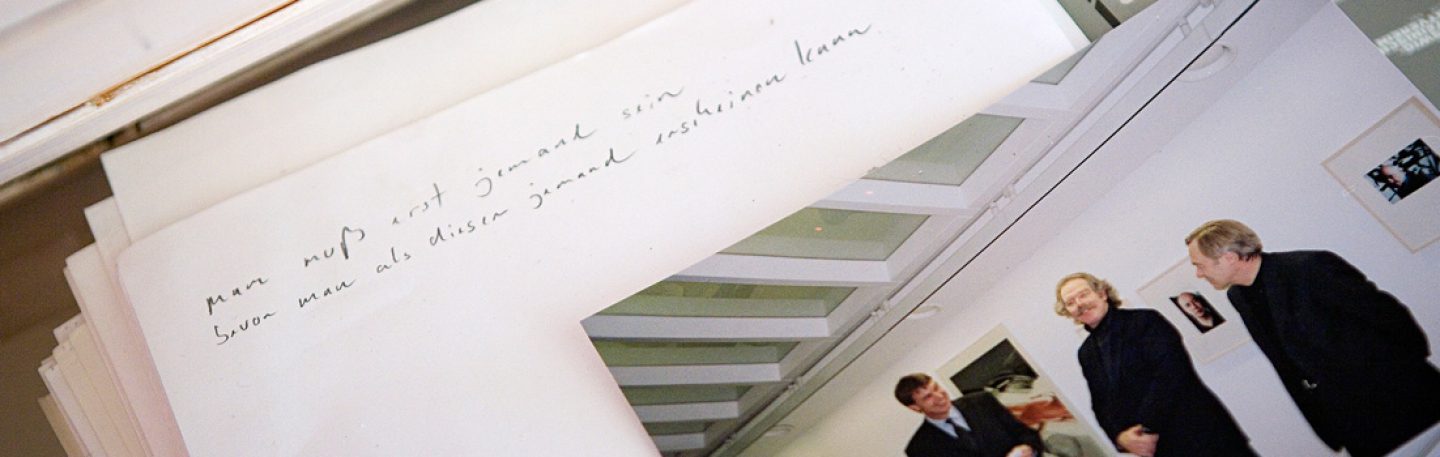 man muß erst jemand sein
bevor man als dieser jemand erscheinen kann.